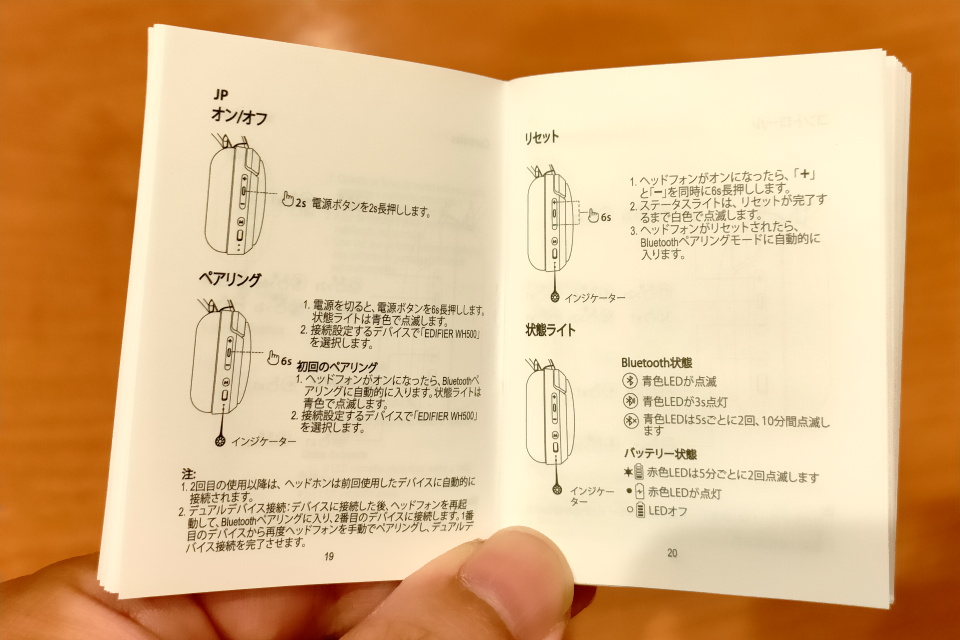 JP
オン/オフ
2s 電源ボタンを2s長押しします。
ペアリング
1. 電源を切ると、電源ボタンを6s長押しします。
状態ライトは青色で点滅します。
2. 接続設定するデバイスで「EDIFIER WH500」
を選択します。
6s
初回のペアリング
1. ヘッドフォンがオンになったら、Bluetoothペ
アリングに自動的に入ります。状態ライトは
青色で点滅します。
2. 接続設定するデバイスで「EDIFIER WH500」
を選択します。
インジケーター
注:
1. 2回目の使用以降は、ヘッドホンは前回使用したデバイスに自動的に
接続されます。
2. デュアルデバイス接続：デバイスに接続した後、ヘッドフォンを再起
動して、Bluetoothペアリングに入り、2番目のデバイスに接続します。1番
目のデバイスから再度ヘッドフォンを手動でペアリングし、デュアルデ
バイス接続を完了させます。
19
リセット
6s
1. ヘッドフォンがオンになったら、「+」
と「−」を同時に6s長押しします。
2. ステータスライトは、リセットが完了す
るまで白色で点滅します。
3. ヘッドフォンがリセットされたら、
Bluetoothペアリングモードに自動的に
入ります。
インジケーター
状態ライト
Bluetooth状態
青色LEDが点滅
青色LEDが3s点灯
青色LEDは5sごとに2回、10分間点滅し
ます
バッテリー状態
赤色LEDは5分ごとに2回点滅します
赤色LEDが点灯
LEDオフ
インジケー
ター
20